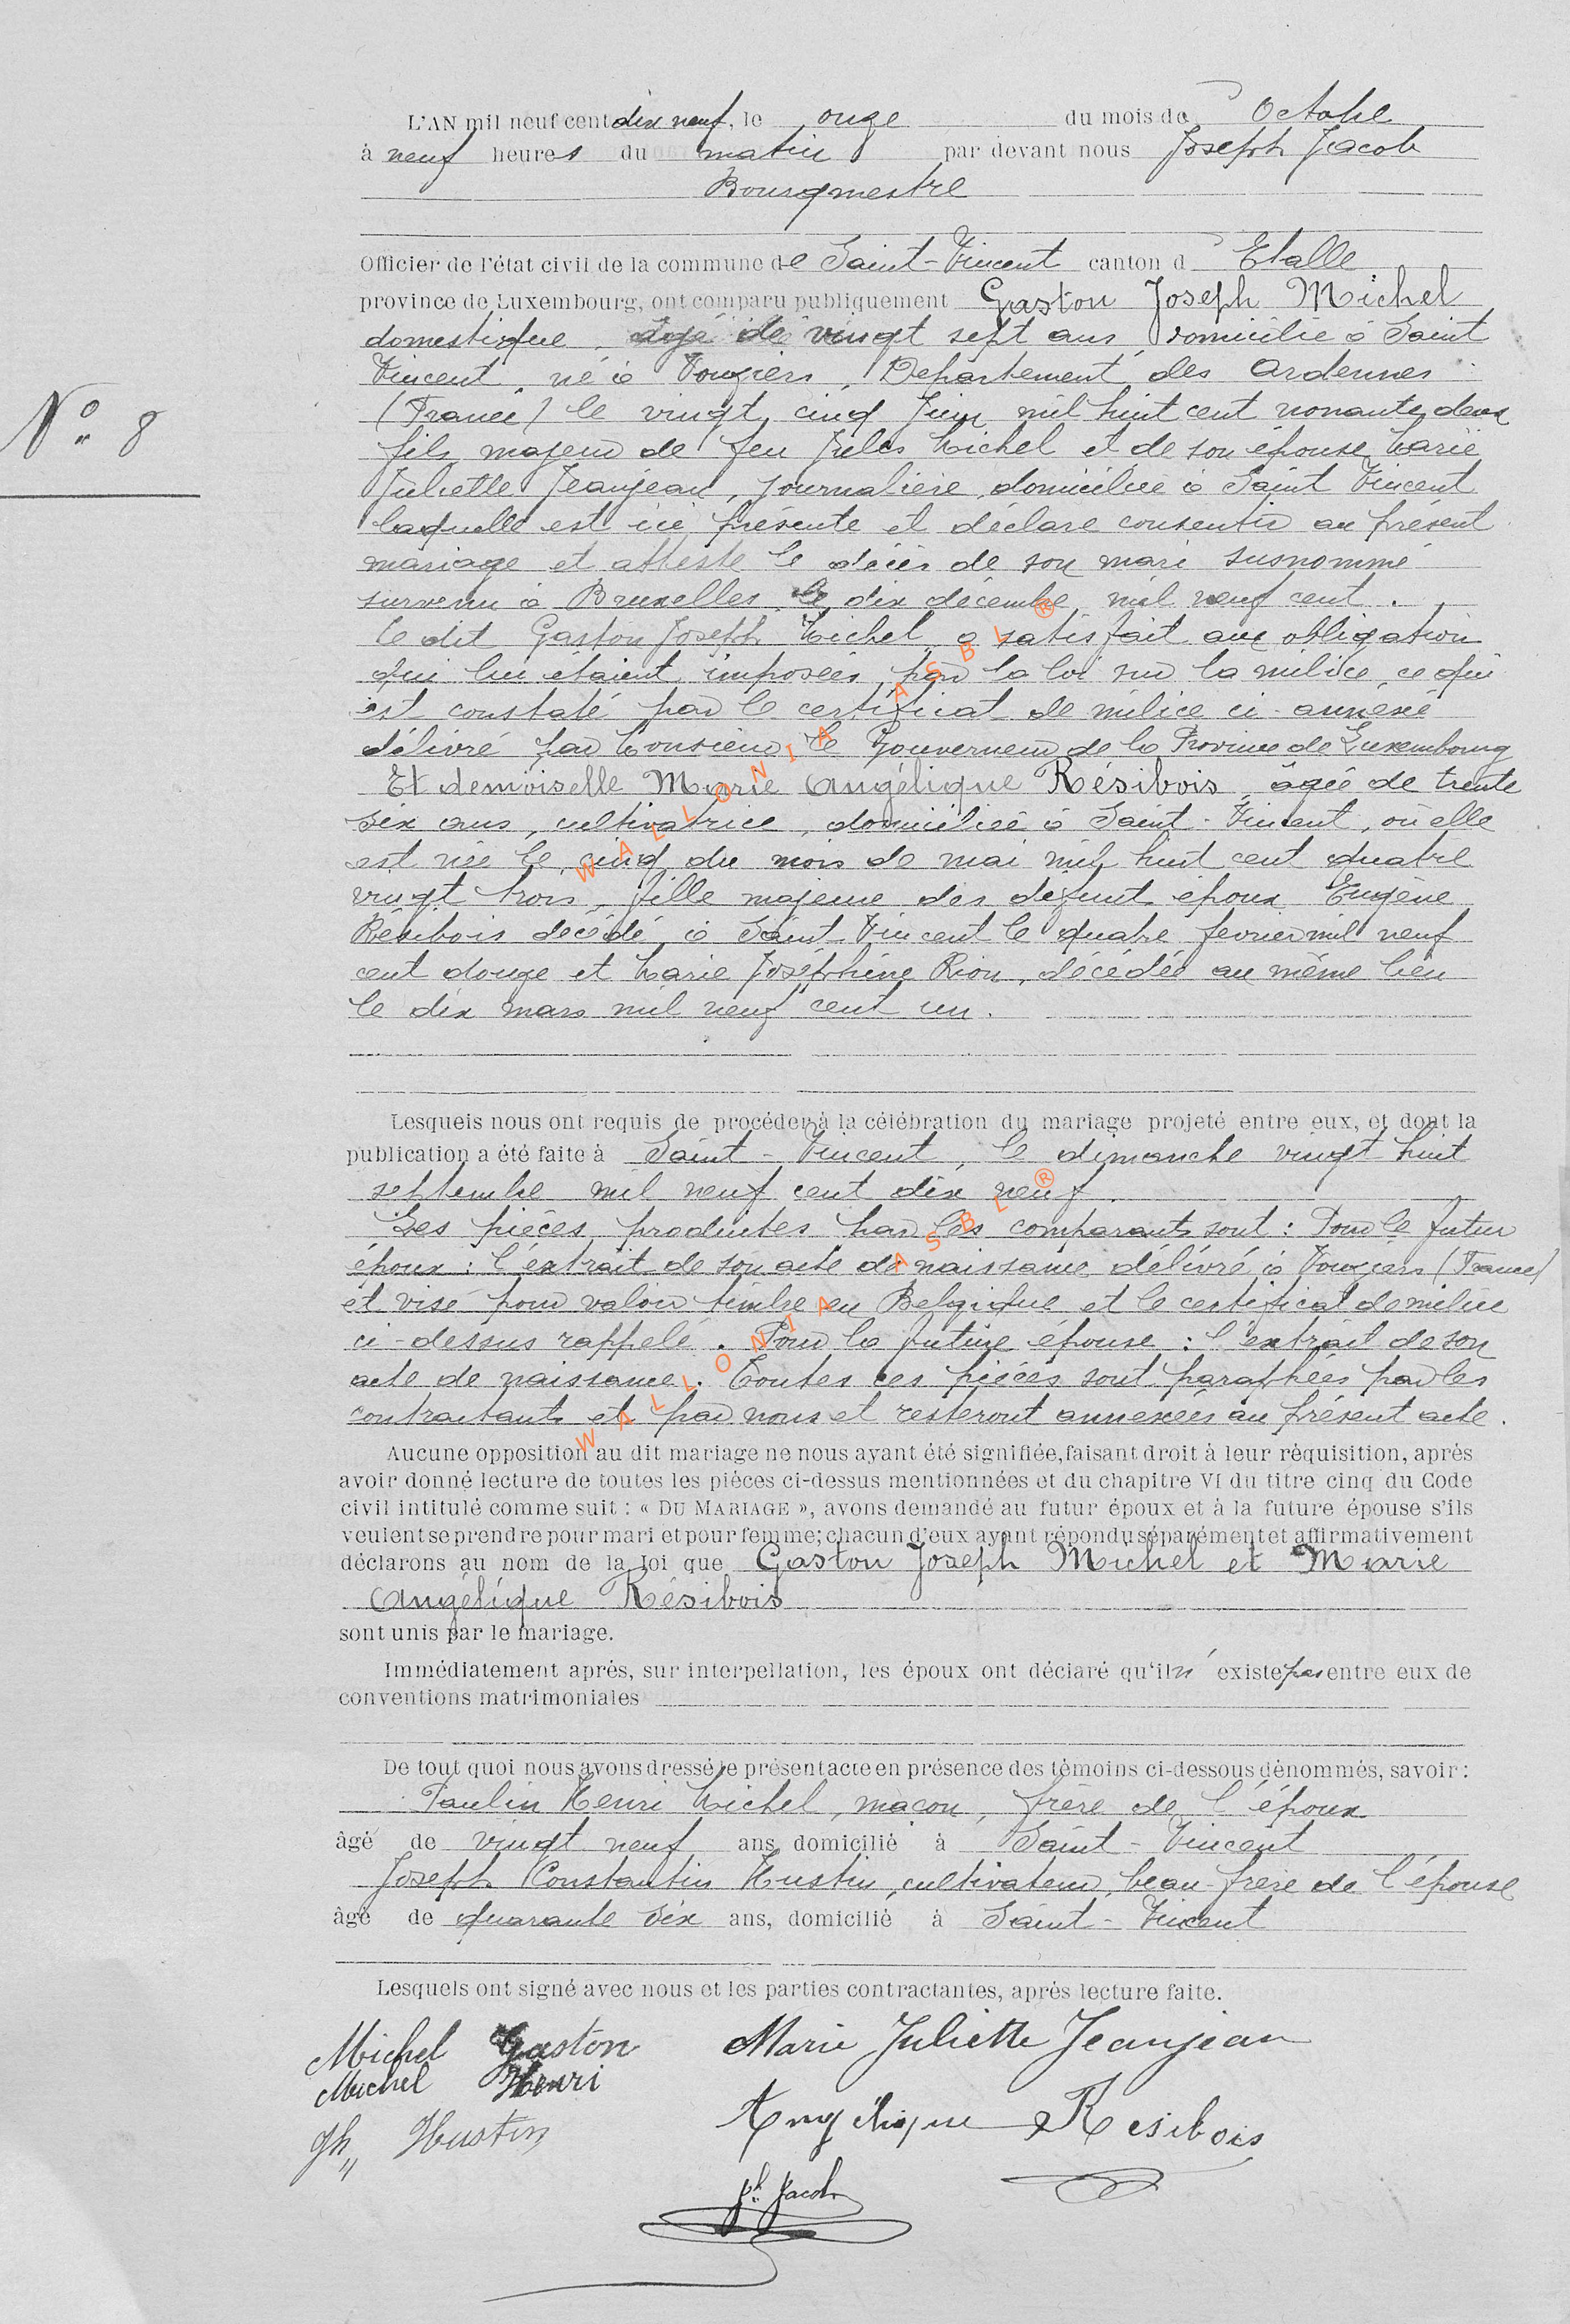 L'AN mil neuf cent dix neuf, le onze du mois de Octobre
à neuf heures du matin par devant nous Joseph Jacob
Bourgmestre
Officier de l'état civil de la commune de Saint-Vincent canton d Etalle
province de Luxembourg, ont comparu publiquement Gaston Joseph Michel
domestique, âgé de vingt sept ans, domicilié à Saint
Vincent, né à Vouziers, Département des Ardennes
(France) le vingt cinq Juin mil huit cent nonante deux
fils majeur de feu Jules Michel et de son épouse Marie
Juliette Jeanjean, journalière, domiciliée à Saint Vincent
laquelle est ici présente et déclare consentir au présent
mariage et atteste le décès de son mari susnommé
survenu à Bruxelles, le dix décembre mil neuf cent.
Le dit Gaston Joseph Michel a satisfait aux obligation
qui lui étaient imposées par la loi sur la milice, ce qui
est constaté par le certificat de milice ci-annexé
délivré par Monsieur le Gouverneur de la Province de Luxembourg
Et demoiselle Marie Angélique Résibois, âgée de trente
six ans, cultivatrice, domiciliée à Saint-Vincent, où elle
est née le cinq du mois de mai mil huit cent quatre
vingt trois, fille majeure des défunt époux Eugène
Résibois décédé à Saint-Vincent le quatre fevrier mil neuf
cent douze et Marie Joséphine Rion, décédée au même lieu
le dix mars mil neuf cent un.
Lesquels nous ont requis de procéder à la célébration du mariage projeté entre eux, et dont la
publication a été faite à Saint-Vincent, le dimanche vingt huit
septembre mil neuf cent dix neuf.
Les pièces produites par les comparants sont : Pour le futur
époux : l'extrait de son acte de naissance délivré à Vouziers (France)
et visé pour valoir timbre en Belgique et le certificat de milice
ci-dessus rappelé. Pour la future épouse : l'extrait de son
acte de naissance. Toutes ces pièces sont paraphées par les
contractants et par nous et resteront annexées au présent acte.
Aucune opposition au dit mariage ne nous ayant été signifiée, faisant droit à leur réquisition, après
avoir donné lecture de toutes les pièces ci-dessus mentionnées et du chapitre VI du titre cinq du Code
civil intitulé comme suit : « DU MARIAGE », avons demandé au futur époux et à la future épouse s'ils
veulent se prendre pour mari et pour femme; chacun d'eux ayant répondu séparément et affirmativement
déclarons au nom de la loi que Gaston Joseph Michel et Marie
Angélique Résibois
sont unis par le mariage.
Immédiatement après, sur interpellation, les époux ont déclaré qu'il n'existe pas entre eux de
conventions matrimoniales
De tout quoi nous avons dressé le présent acte en présence des témoins ci-dessous dénommés, savoir :
Paulin Henri Michel, maçon, frère de l'époux
âgé de vingt neuf ans, domicilié à Saint-Vincent
Joseph Constantin Hustin, cultivateur, beau-frère de l'épouse
âgé de quarante six ans, domicilié à Saint-Vincent
Lesquels ont signé avec nous et les parties contractantes, après lecture faite.
Michel Gaston Marie Juliette Jeanjean
Michel Henri
Jh Hustin Angélique Résibois
Jh Jacob
N° 8
WALLONIA ASBL ®
WALLONIA ASBL ®